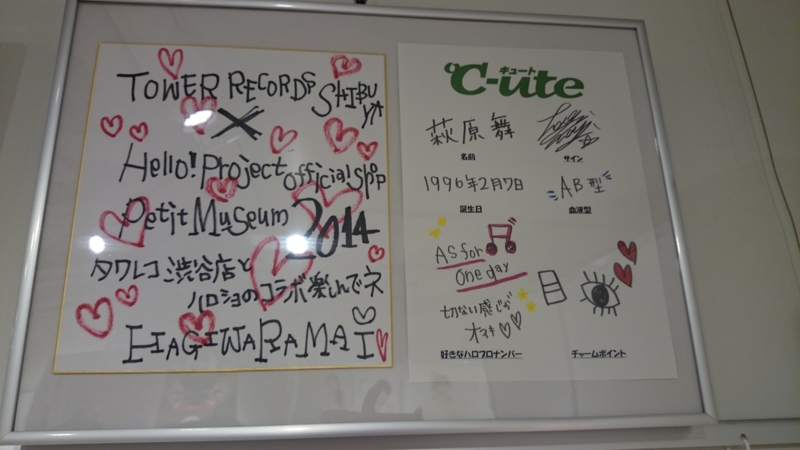 TOWER RECORDS SHIBUYA
×
Hello! Project official shop
Petit Museum 2014
タワレコ渋谷店と
ハロショのコラボ楽しんでネ
HAGIWARAMAI
℃-ute
キュート
萩原舞
名前
サイン
1996年2月7日
誕生日
AB型
血液型
AS for
one day
切ない感じが
オススメ
好きなハロプロナンバー
チャームポイント